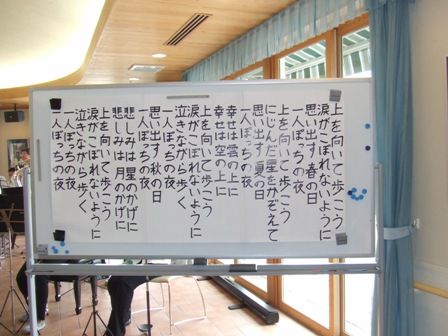 上を向いて歩こう
涙がこぼれないように
思い出す春の日
一人ぼっちの夜
上を向いて歩こう
にじんだ星をかぞえて
思い出す夏の日
一人ぼっちの夜
幸せは雲の上に
幸せは空の上に
上を向いて歩こう
涙がこぼれないように
泣きながら歩く
一人ぼっちの夜
思い出す秋の日
一人ぼっちの夜
悲しみは星のかげに
悲しみは月のかげに
上を向いて歩こう
涙がこぼれないように
泣きながら歩く
一人ぼっちの夜
一人ぼっちの夜